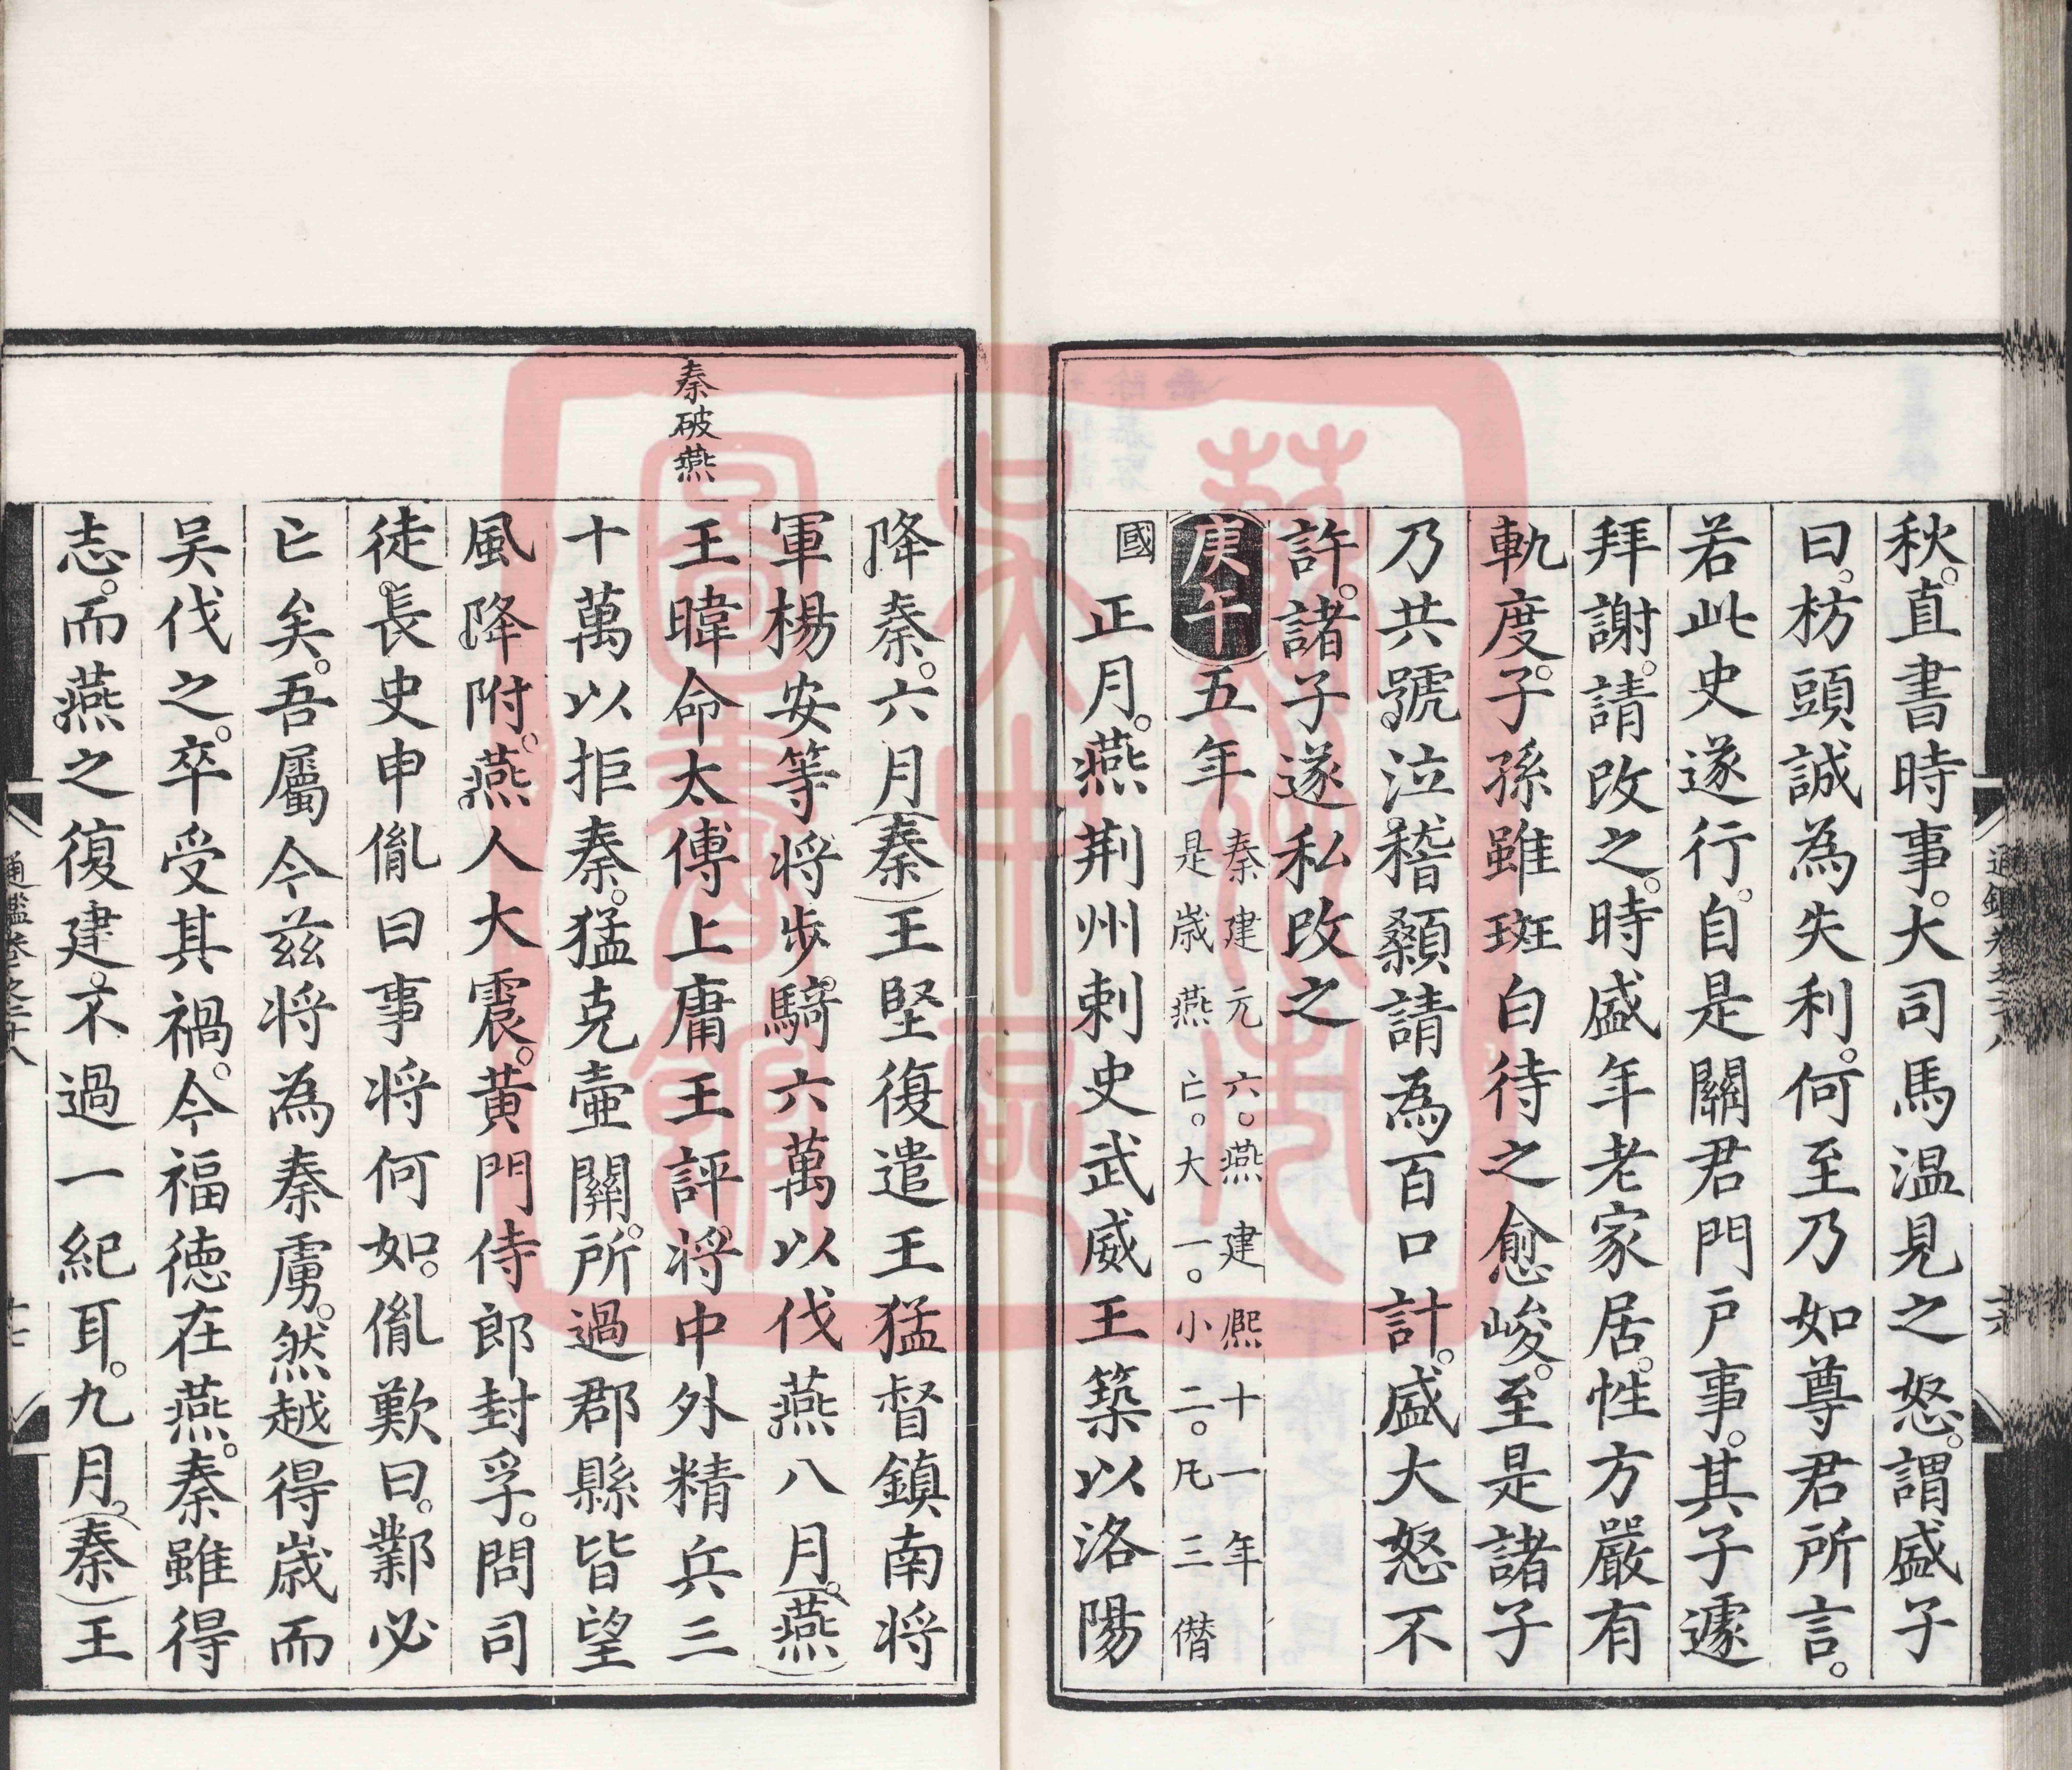 秋。直書時事。大司馬温見之怒。謂盛子
曰。枋頭誠為失利。何至乃如尊君所言。
若此史遂行。自是關君門戸事。其子遽
拜謝。請改之。時盛年老家居。性方嚴有
軌度。子孫雖斑白待之愈峻。至是諸子
乃共號泣稽顙請為百口計。盛大怒不
許。諸子遂私改之
庚午五年秦建元六。燕建熙十一年
是歳燕亡。大一。小二。凡三僣
國正月。燕荆州刺史武威王築以洛陽
秦破燕
降秦。六月秦王堅復遣王猛督鎮南将
軍楊安等将歩騎六萬以伐燕八月。燕
王暐命太傅上庸王評。将中外精兵三
十萬以拒秦。猛克壷關。所過郡縣皆望
風降附。燕人大震。黄門侍郎封孚。問司
徒長史申胤曰事将何如。胤歎曰。鄴必
亡矣。吾屬今兹将為秦虜。然越得歳而
吴伐之。卒受其禍。今福徳在燕。秦雖得
志。而燕之復建。不過一紀耳。九月。秦王